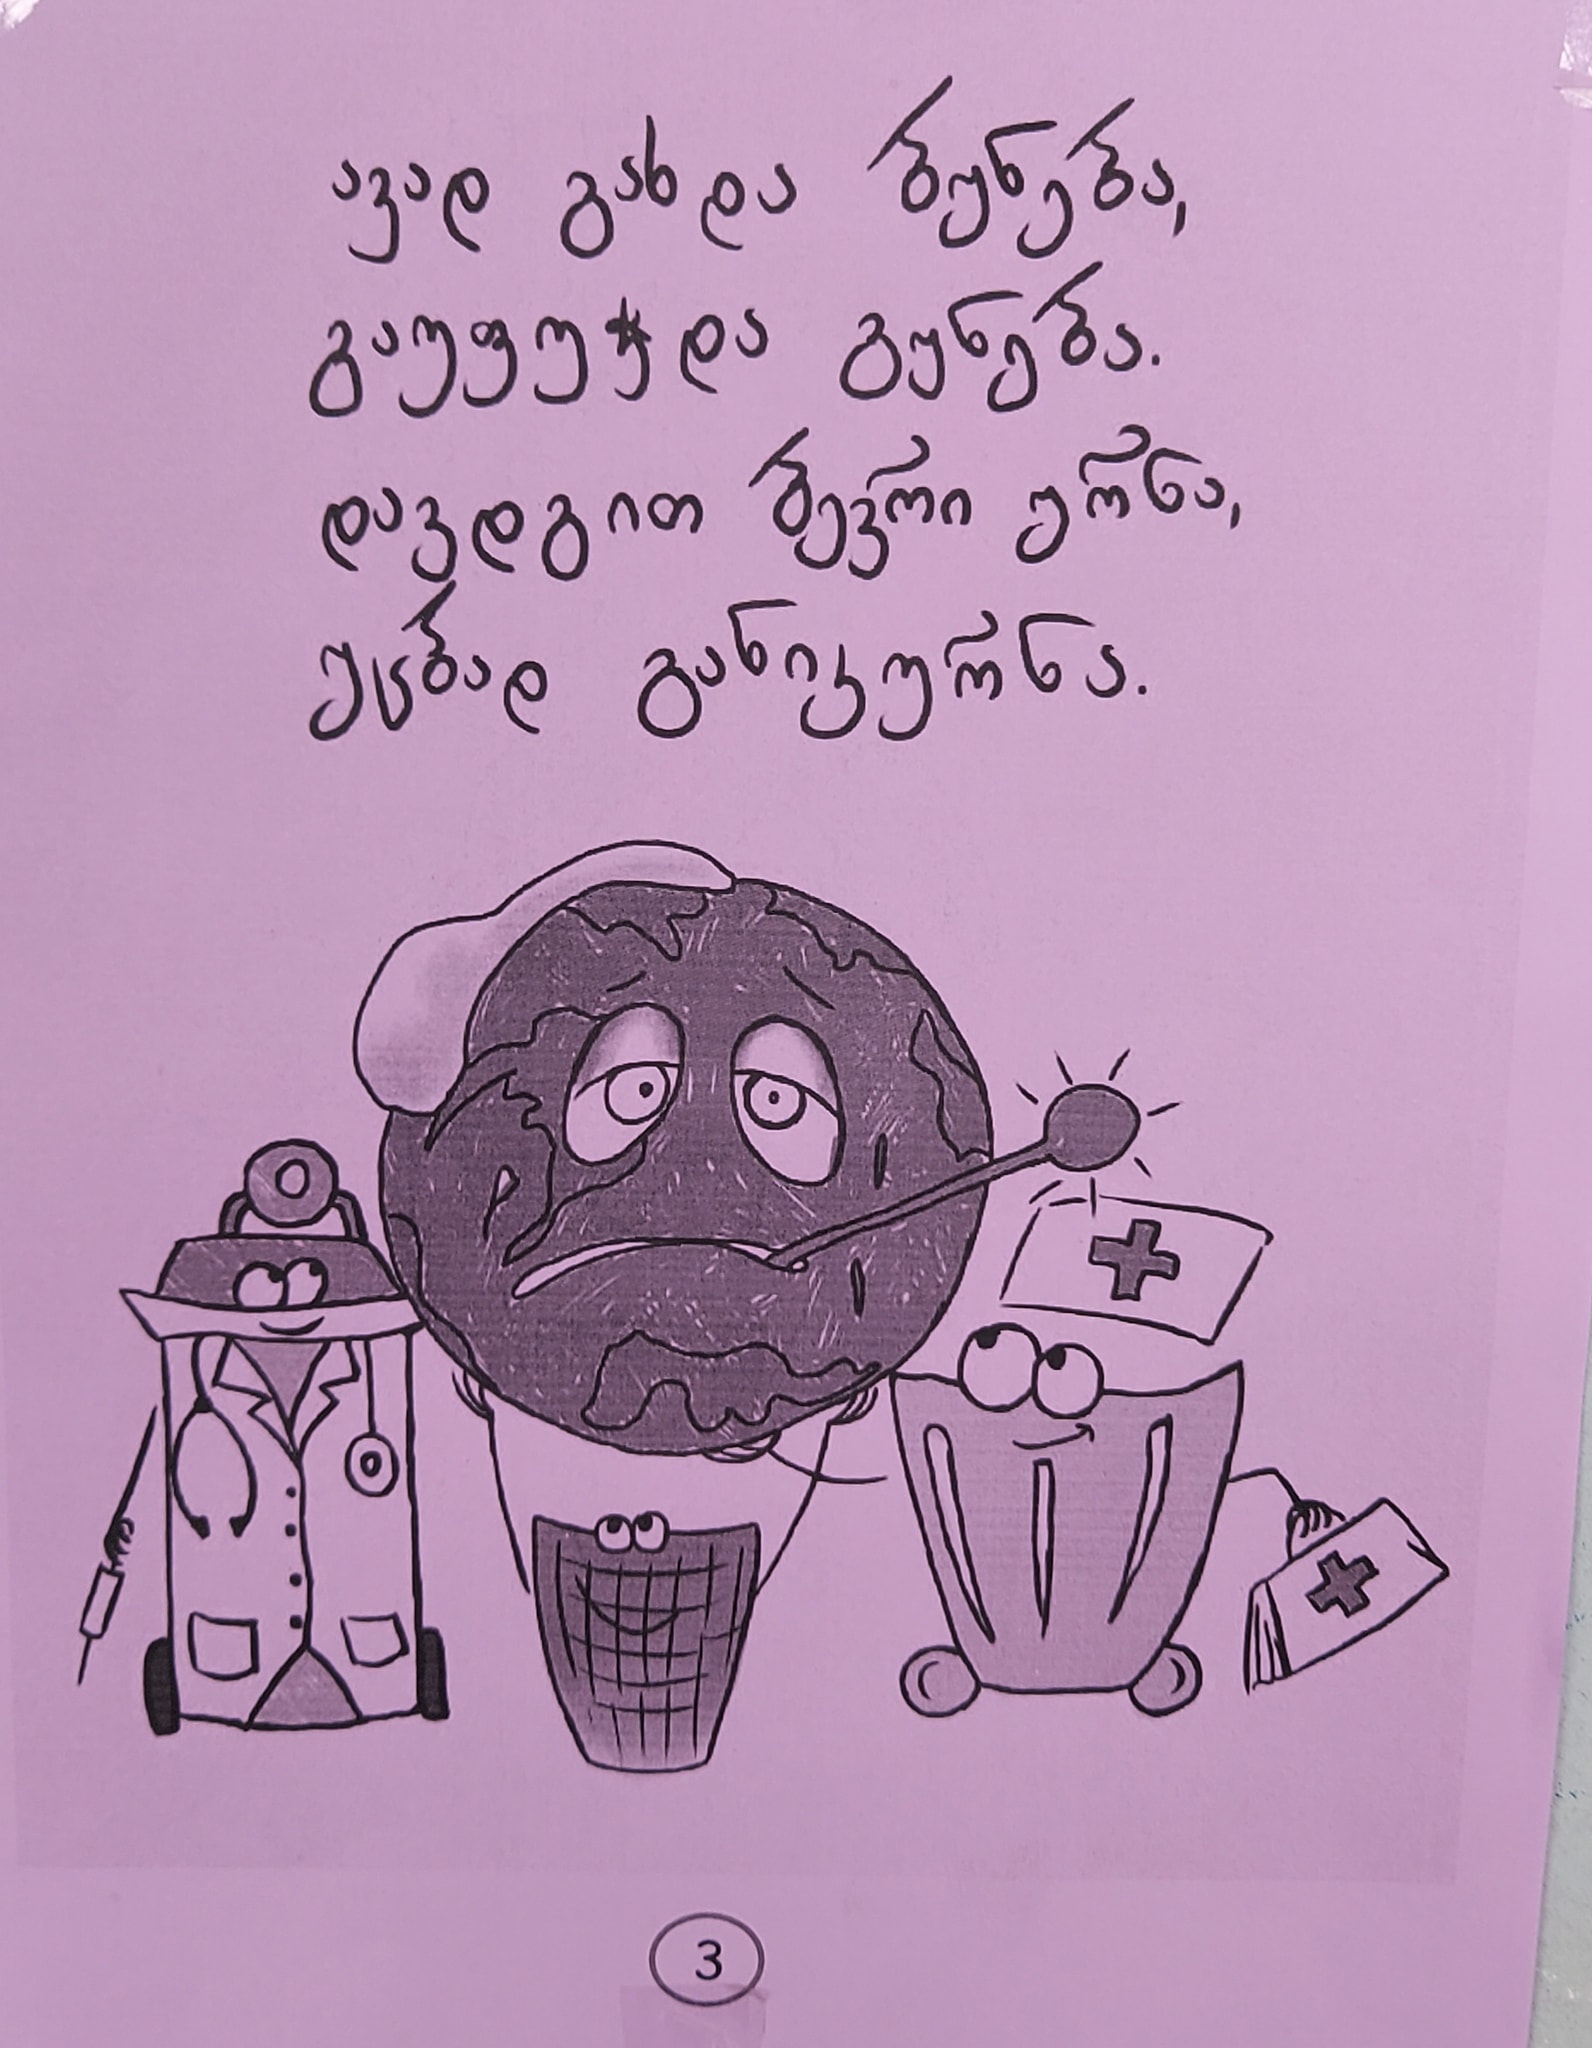 ავად გახდა ბუნება,
გაუფუჭდა გუნება.
დავდგით ბევრი ურნა,
უცბად განიკურნა.
3